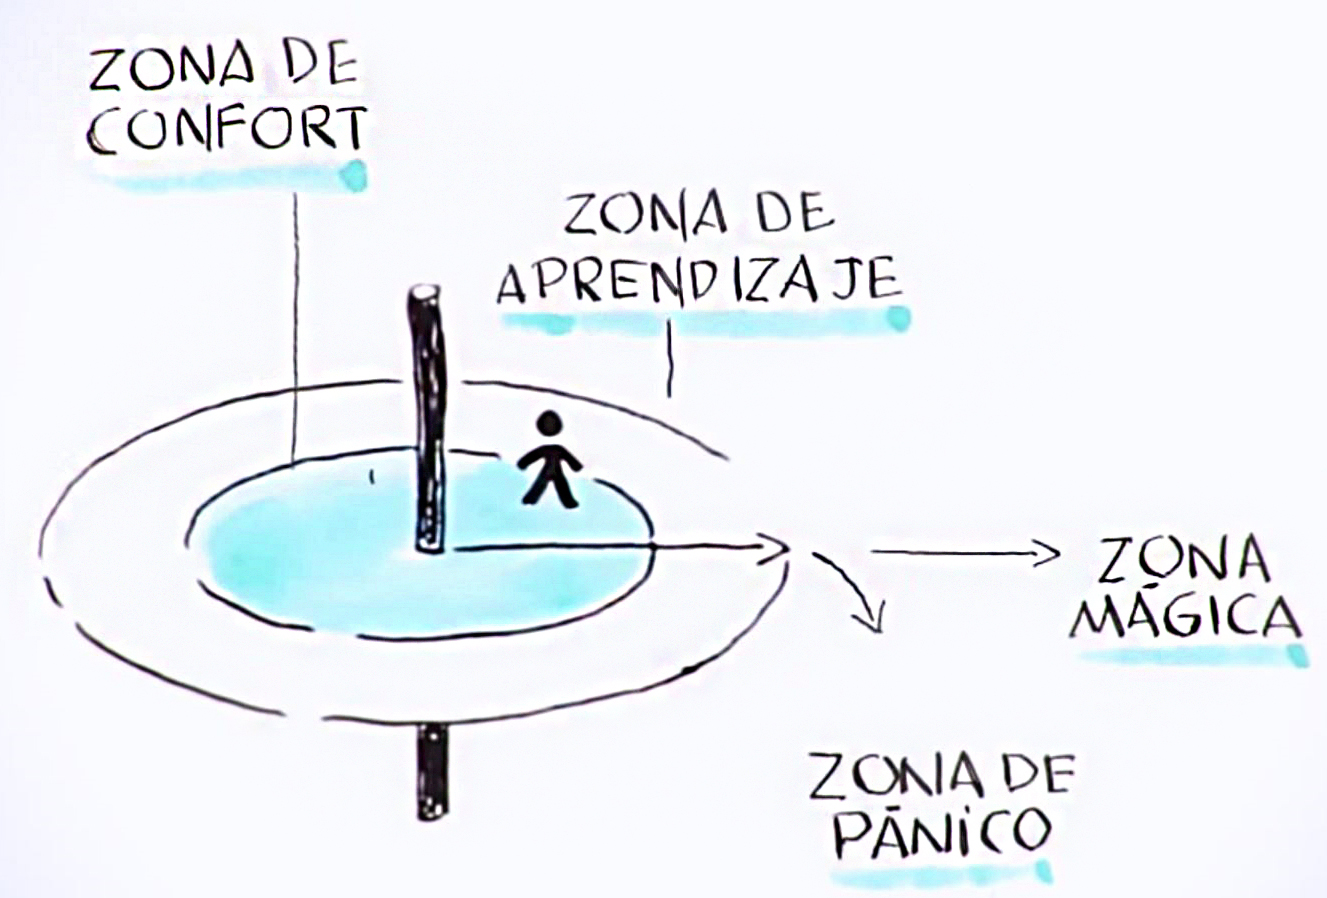 ZONA DE
CONFORT
ZONA DE
APRENDIZAJE
ZONA
MÁGICA
ZONA DE
PÁNICO